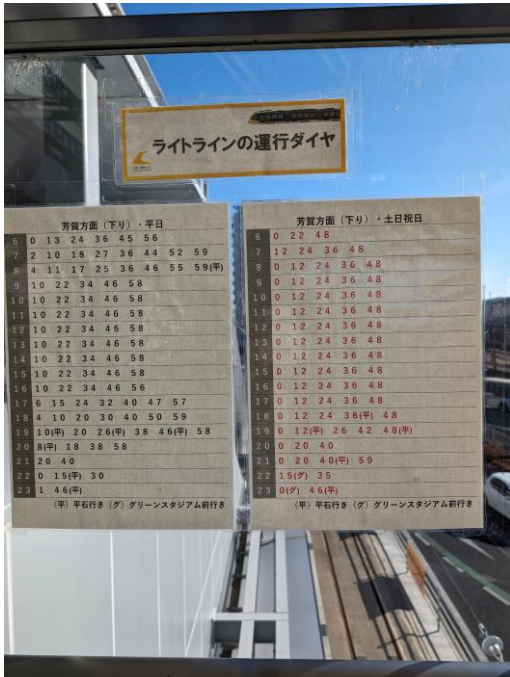 ライトラインの運行ダイヤ
芳賀方面（下り）・平日
6 0 13 24 36 45 56
7 2 10 18 27 36 44 52 59
8 4 11 17 25 36 46 55 59(平)
9 10 22 34 46 58
10 10 22 34 46 58
11 10 22 34 46 58
12 10 22 34 46 58
13 10 22 34 46 58
14 10 22 34 46 58
15 10 22 34 46 58
16 10 22 34 46 56
17 6 15 24 32 40 47 57
18 4 10 20 30 40 50 59
19 10(平) 20 26(平) 38 46(平) 58
20 8(平) 18 38 58
21 20 40
22 0 15(平) 30
23 1 46(平)
（平）平石行き（グ）グリーンスタジアム前行き
芳賀方面（下り）・土日祝日
6 0 22 48
7 12 24 36 48
8 0 12 24 36 48
9 0 12 24 36 48
10 0 12 24 36 48
11 0 12 24 36 48
12 0 12 24 36 48
13 0 12 24 36 48
14 0 12 24 36 48
15 0 12 24 36 48
16 0 12 24 36 48
17 0 12 24 36 48
18 0 12 24 36(平) 48
19 0 12(平) 26 42 48(平)
20 0 20 40
21 0 20 40(平) 59
22 15(グ) 35
23 0(グ) 46(平)
（平）平石行き（グ）グリーンスタジアム前行き